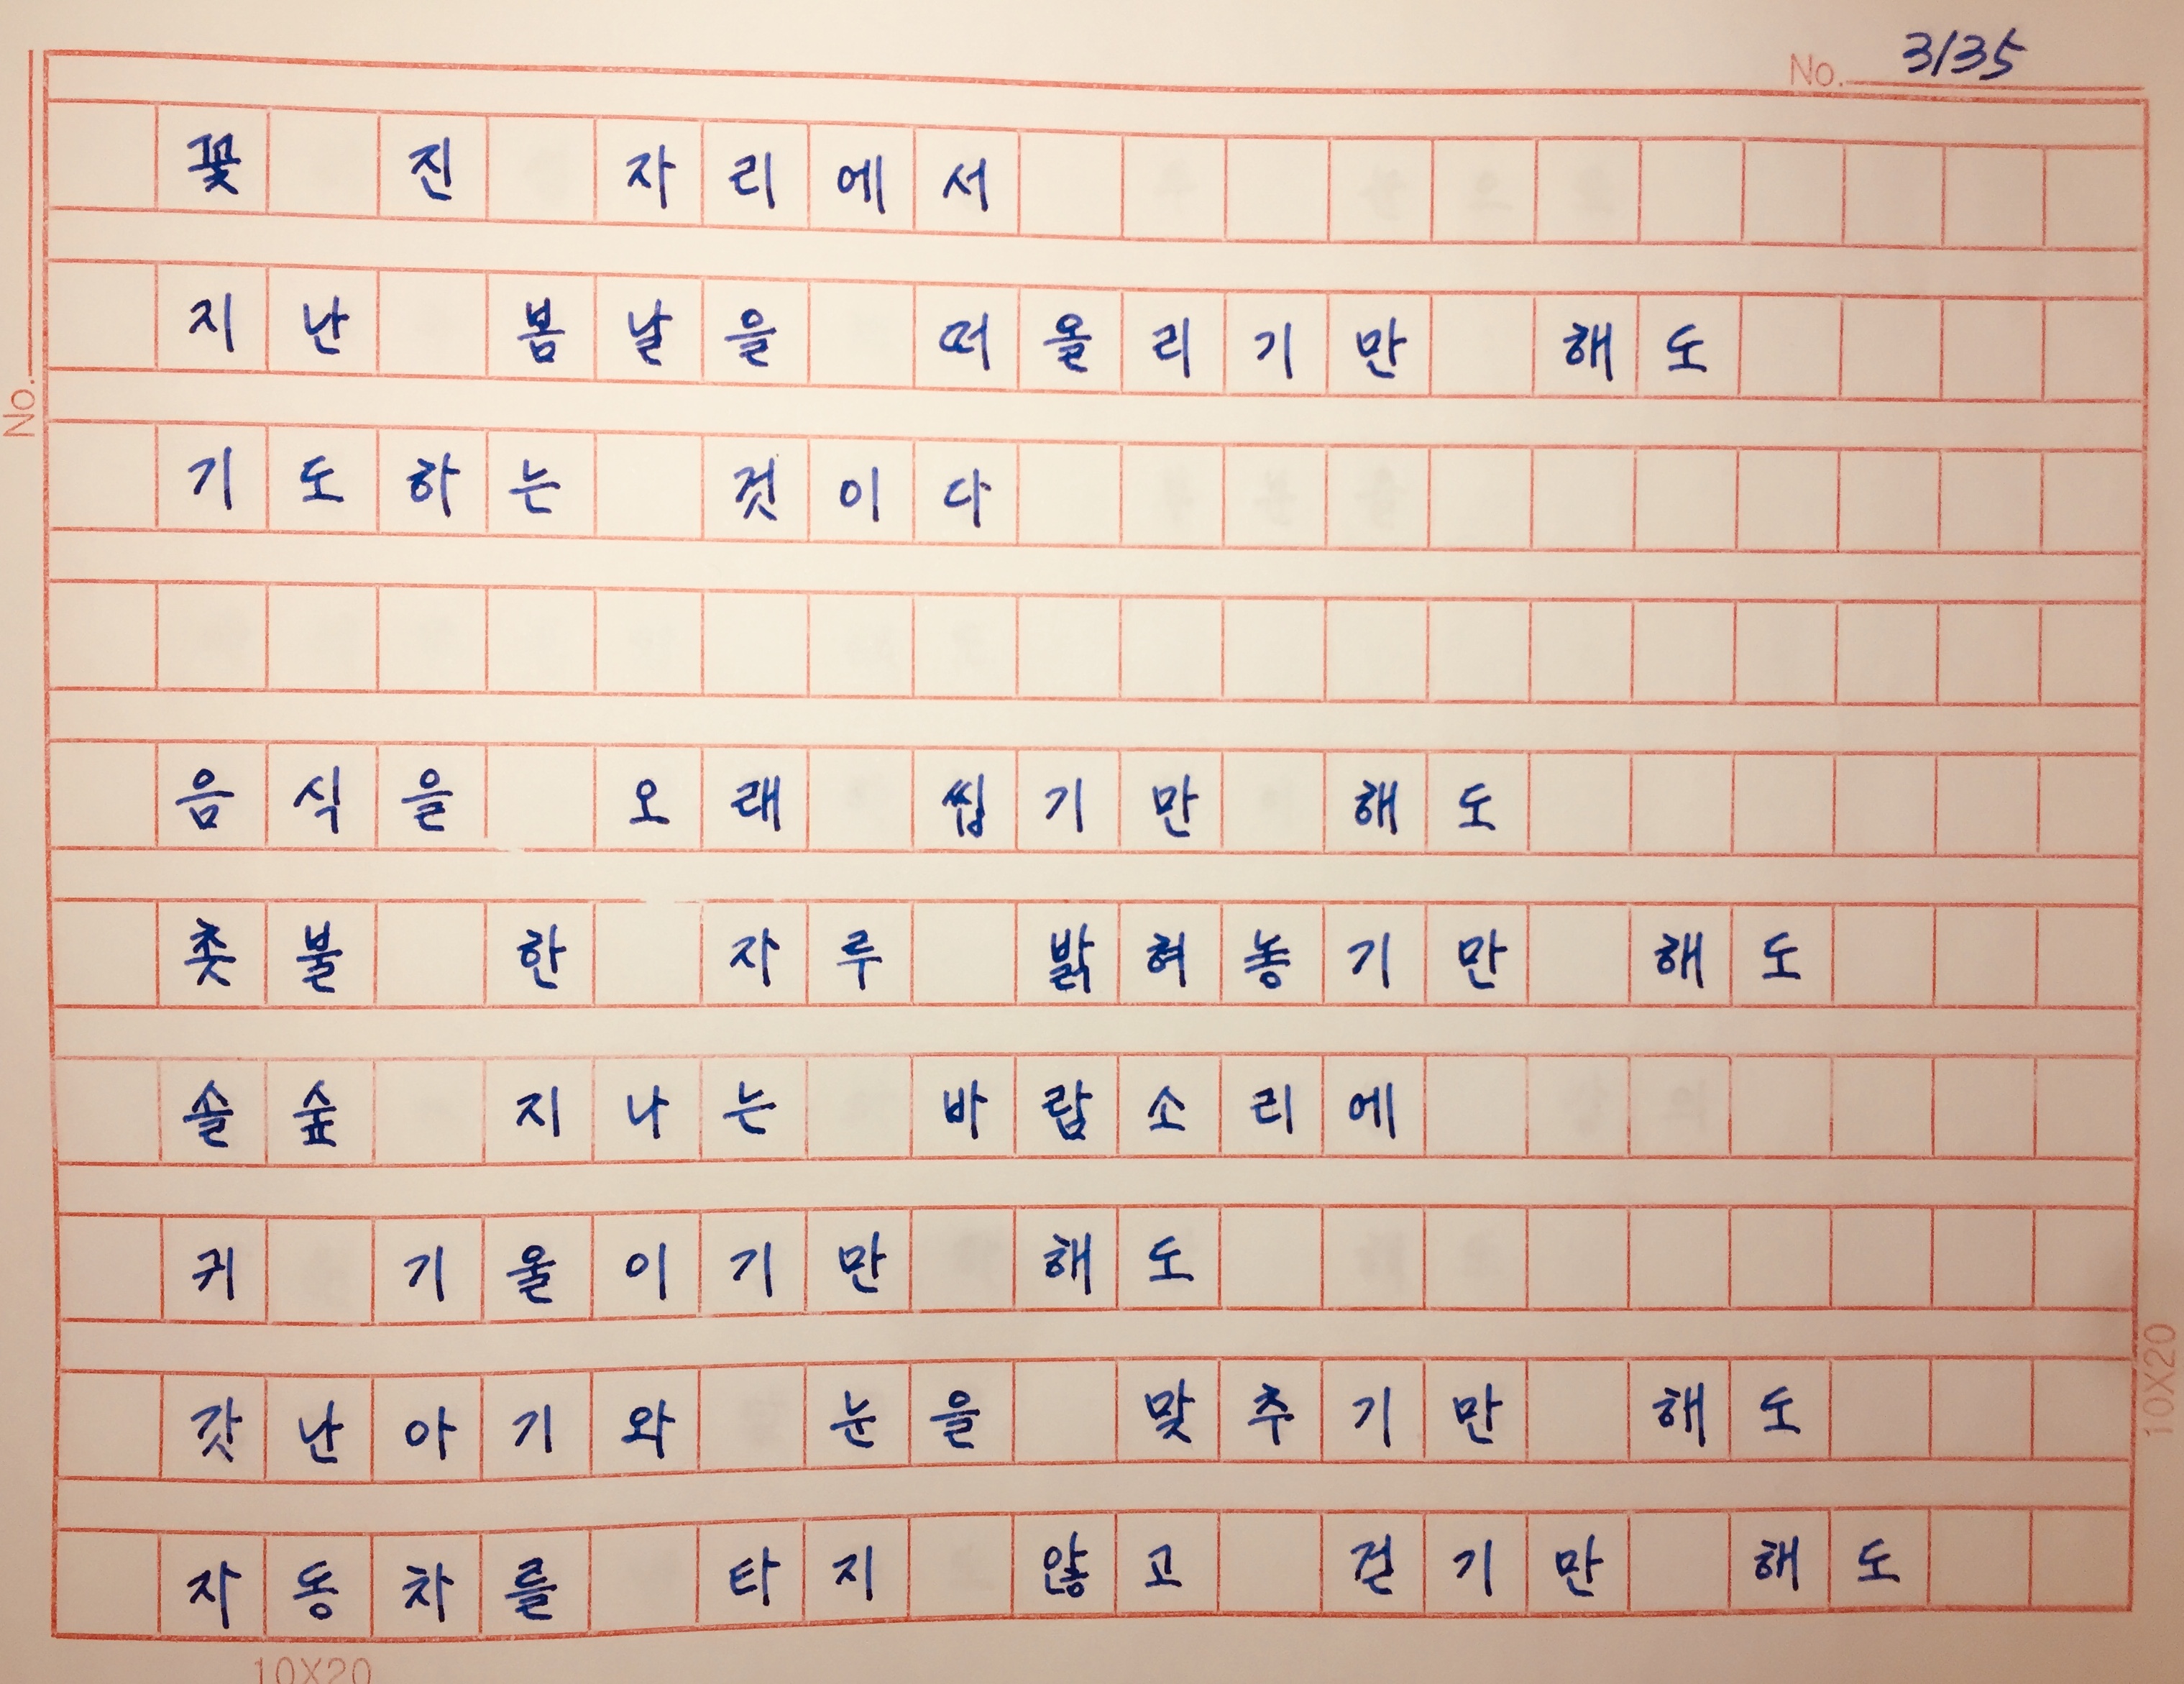 No. 3135
꽃 진 자리에서
지난 봄날을 떠올리기만 해도
기도하는 것이다
음식을 오래 씹기만 해도
촛불 한 자루 밝혀놓기만 해도
솔숲 지나는 바람소리에
귀 기울이기만 해도
갓난아기와 눈을 맞추기만 해도
자동차를 타지 않고 걷기만 해도
No.
10X20
10X20